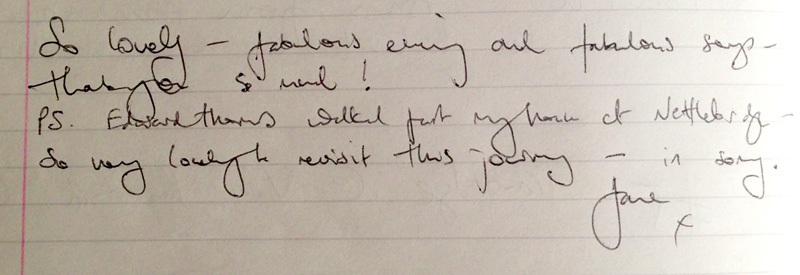 So lovely – fabulous evening and fabulous songs –
thank you so much!
PS. Edward Thomas walked past my house at Nettlebridge –
So very lovely to revisit this journey – in song.
Jane
x